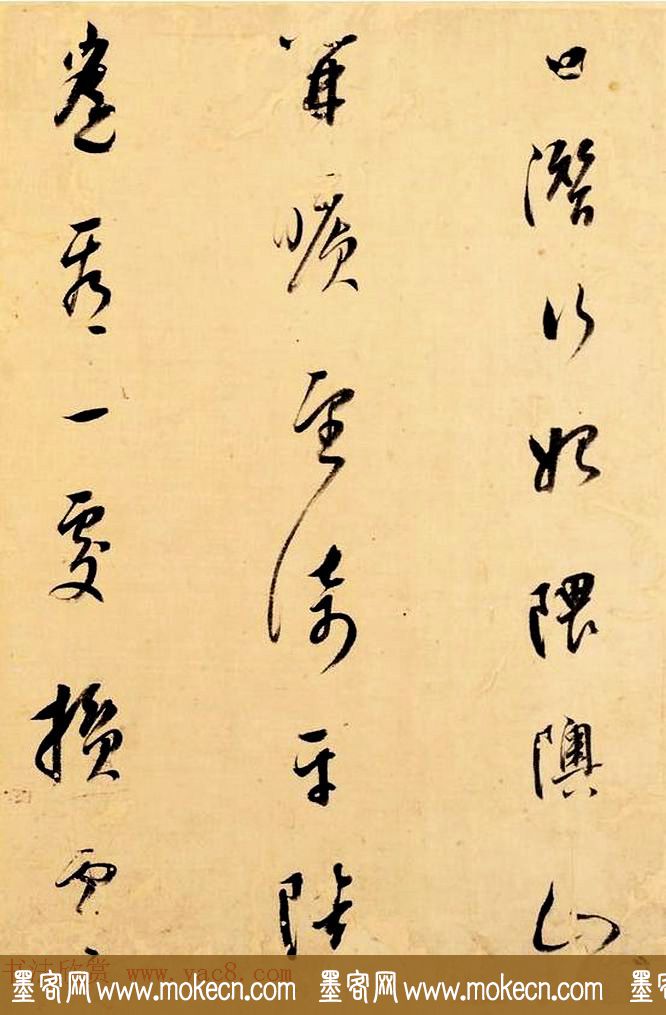 口潛行始隈隩山
開曠望旋平陸
遙看一處攢雲
书法欣赏 www.yac8.com
墨客网 www.mokecn.com 墨客网 www.mokecn.com